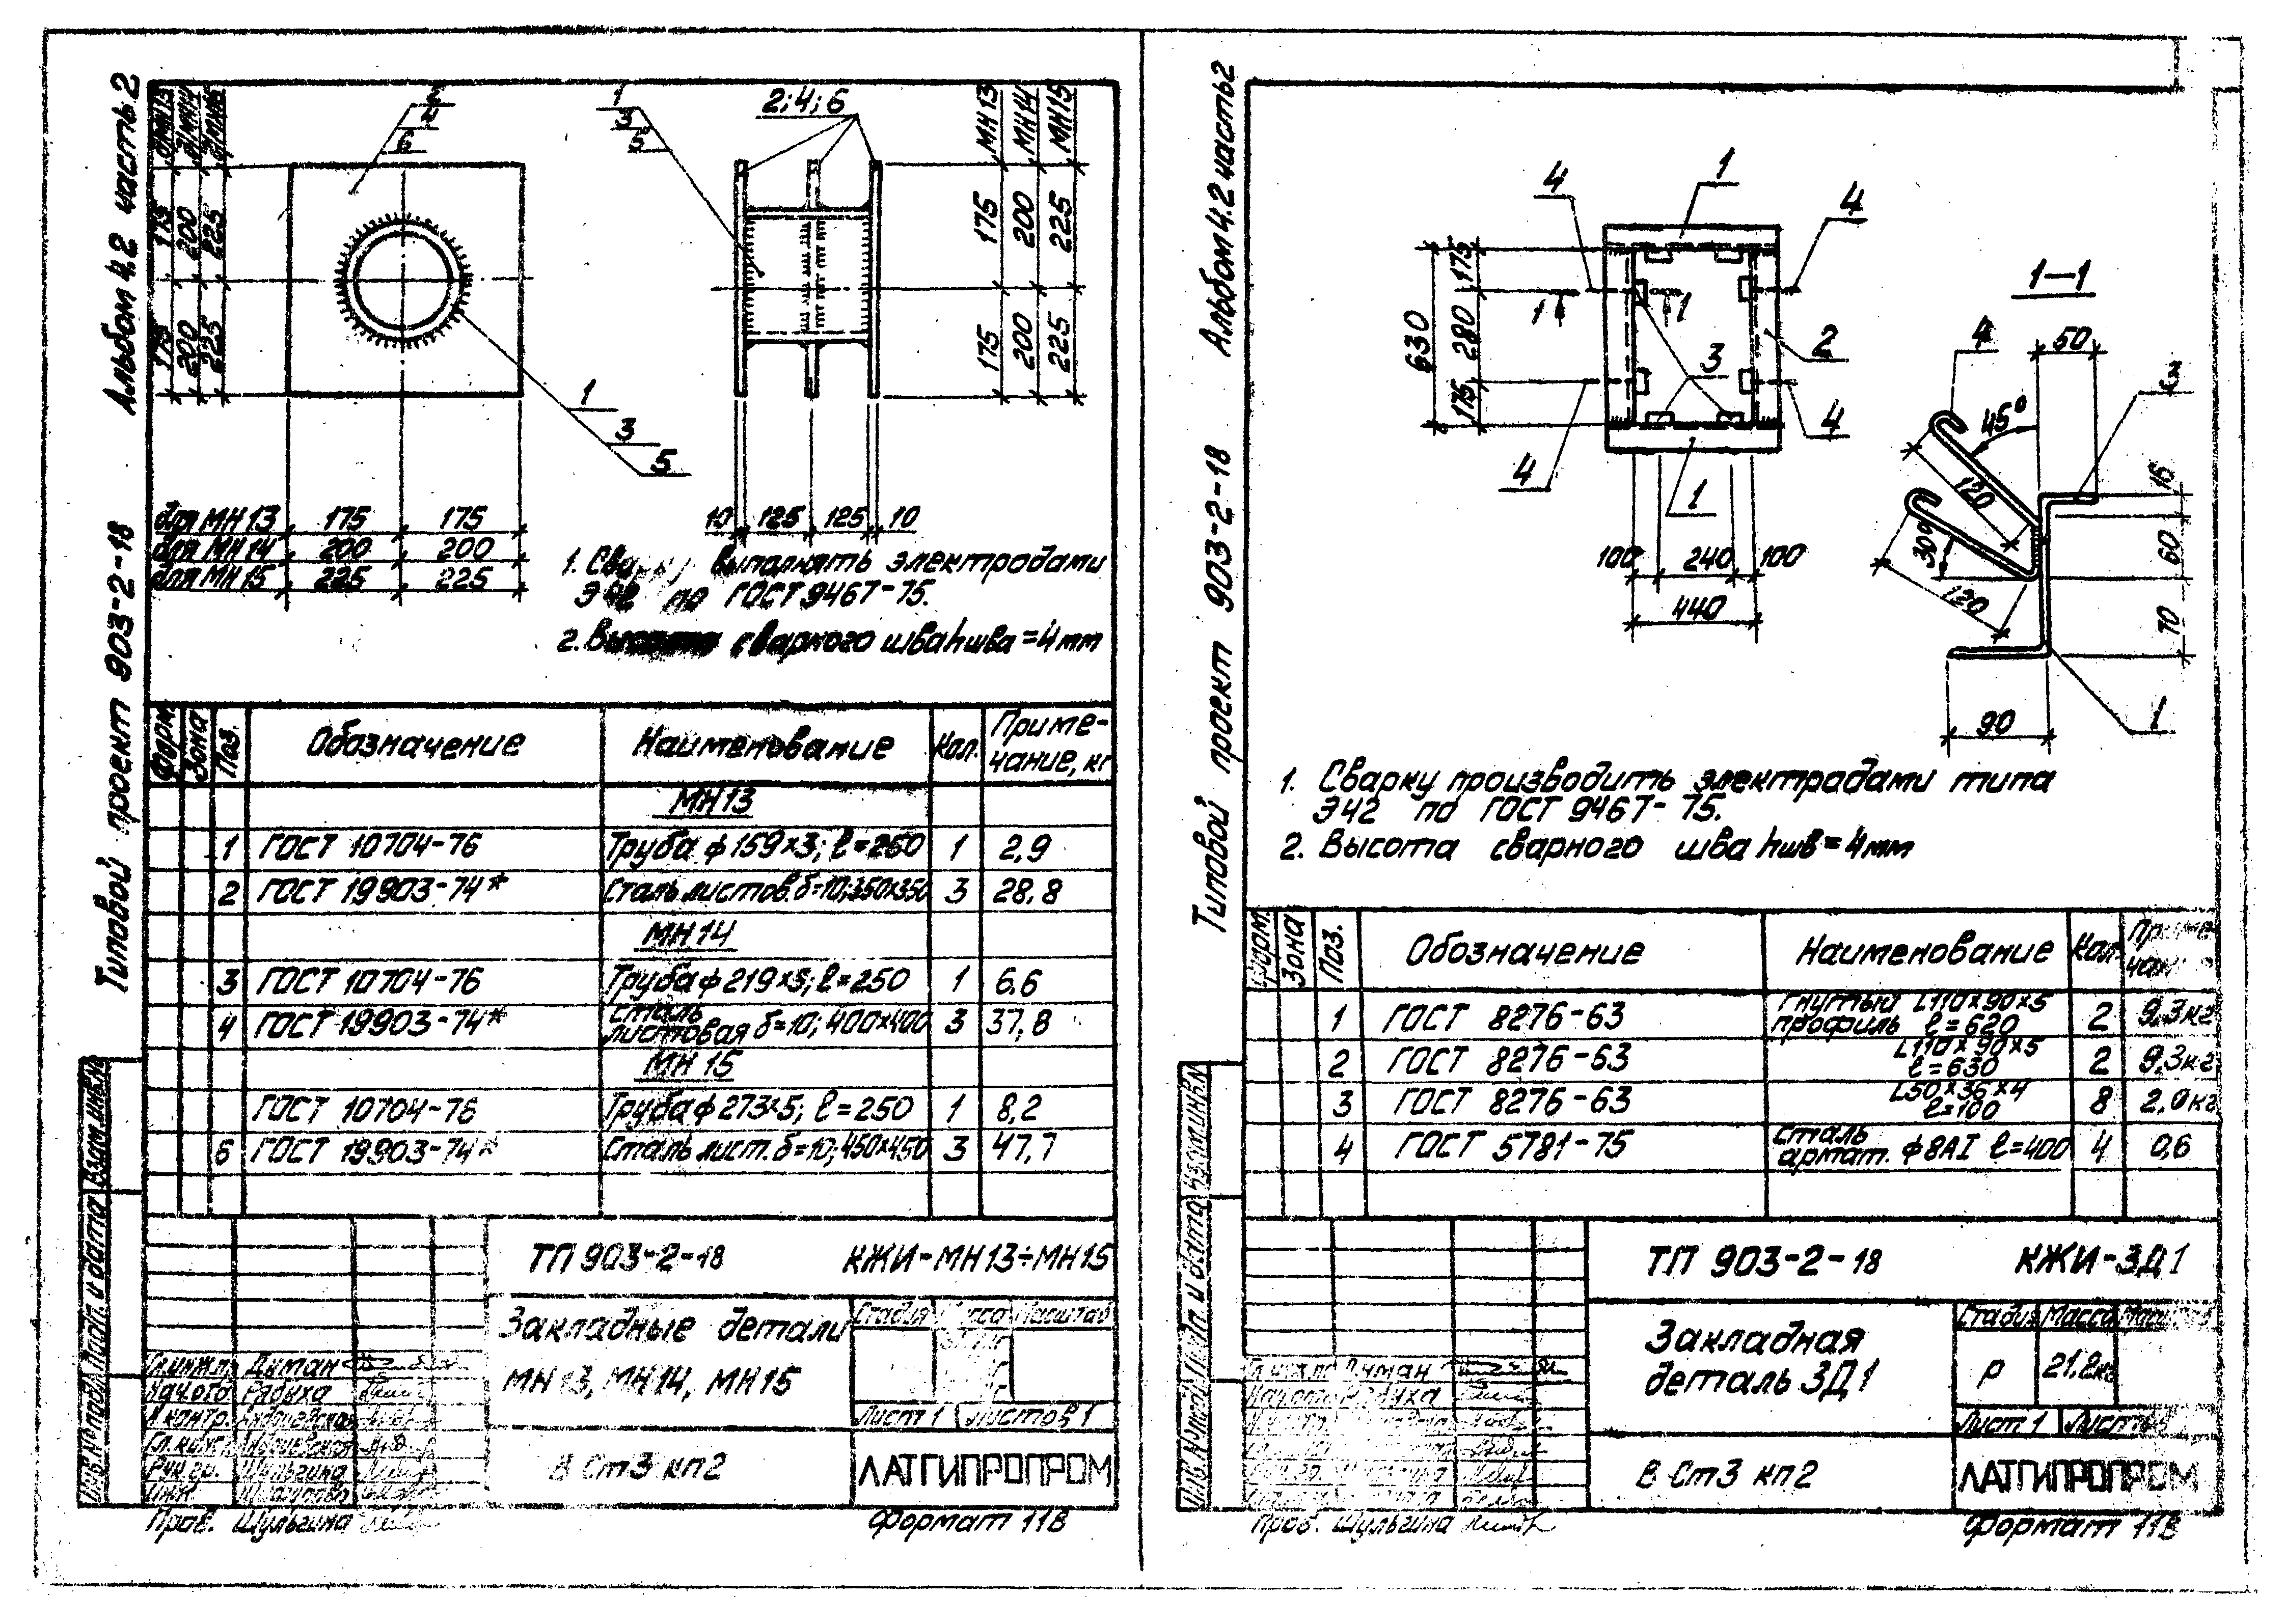 Альбом 4.2 часть 2
Типовой проект 903-2-18
д/МН13
д/МН14
д/МН15
175 175
200 200
225 225
2
4
6
1
3
5
для МН 13 175 175
для МН 14 200 200
для МН 15 225 225
1
3
5
2; 4; 6
МН13
МН14
МН15
175 200 225
175 200 225
10 125 125 10
1. выполнять электродами
Э42 по ГОСТ 9467-75.
2. Высота сварного шва hшва = 4мм
Форм. Зона Поз. Обозначение Наименование Кол. Приме-
чание, кг
МН13
1 ГОСТ 10704-76 Труба ф 159×3; ℓ=250 1 2,9
2 ГОСТ 19903-74* Сталь листов. δ=10; 350×350 3 28,8
МН14
3 ГОСТ 10704-76 Труба ф 219×5; ℓ=250 1 6,6
4 ГОСТ 19903-74* Сталь
листовая δ=10; 400×400 3 37,8
МН 15
ГОСТ 10704-76 Труба ф 273×5; ℓ=250 1 8,2
6 ГОСТ 19903-74* Сталь лист. δ=10; 450×450 3 47,7
ТП 903-2-18 КЖИ-МН13÷МН15
Закладные детали
МН13, МН14, МН15
Стадия Масса Масштаб
Лист 1 Листов 1
В Ст3 кп2
ЛАТГИПРОПРОМ
Гл.инж.пр. Диман
Нач.отд. Рябуха
Н.контр.
Гл.констр.
Рук.гр. Шульгина
Инж.
Пров. Шульгина
Формат 11В
Инв.№ подл. Подп. и дата Взам.инв.№
Альбом 4.2 часть 2
Типовой проект 903-2-18
1
4
4
1 1
2
3
4
4
1
630
175 280 175
100 240 100
440
1-1
4
50
45°
120
30°
120
16
60
70
90
1
1. Сварку производить электродами типа
Э42 по ГОСТ 9467-75.
2. Высота сварного шва hшв = 4мм
Форм. Зона Поз. Обозначение Наименование Кол. Приме-
чан
1 ГОСТ 8276-63 гнутый L110×90×5
профиль ℓ=620 2 9,3кг
2 ГОСТ 8276-63 L110×90×5
ℓ=630 2 9,3кг
3 ГОСТ 8276-63 L50×36×4
ℓ=100 8 2,0кг
4 ГОСТ 5781-75 сталь
армат. ф8АI ℓ=400 4 0,6
ТП 903-2-18 КЖИ-ЗД1
Закладная
деталь ЗД1
Стадия Масса
Р 21,2кг
Лист 1 Листов
В Ст3 кп2
ЛАТГИПРОПРОМ
Гл.инж.пр. Диман
Нач.отд. Рябуха
Пров. Шульгина
Формат 11В
Инв.№ подл. Подп. и дата Взам.инв.№